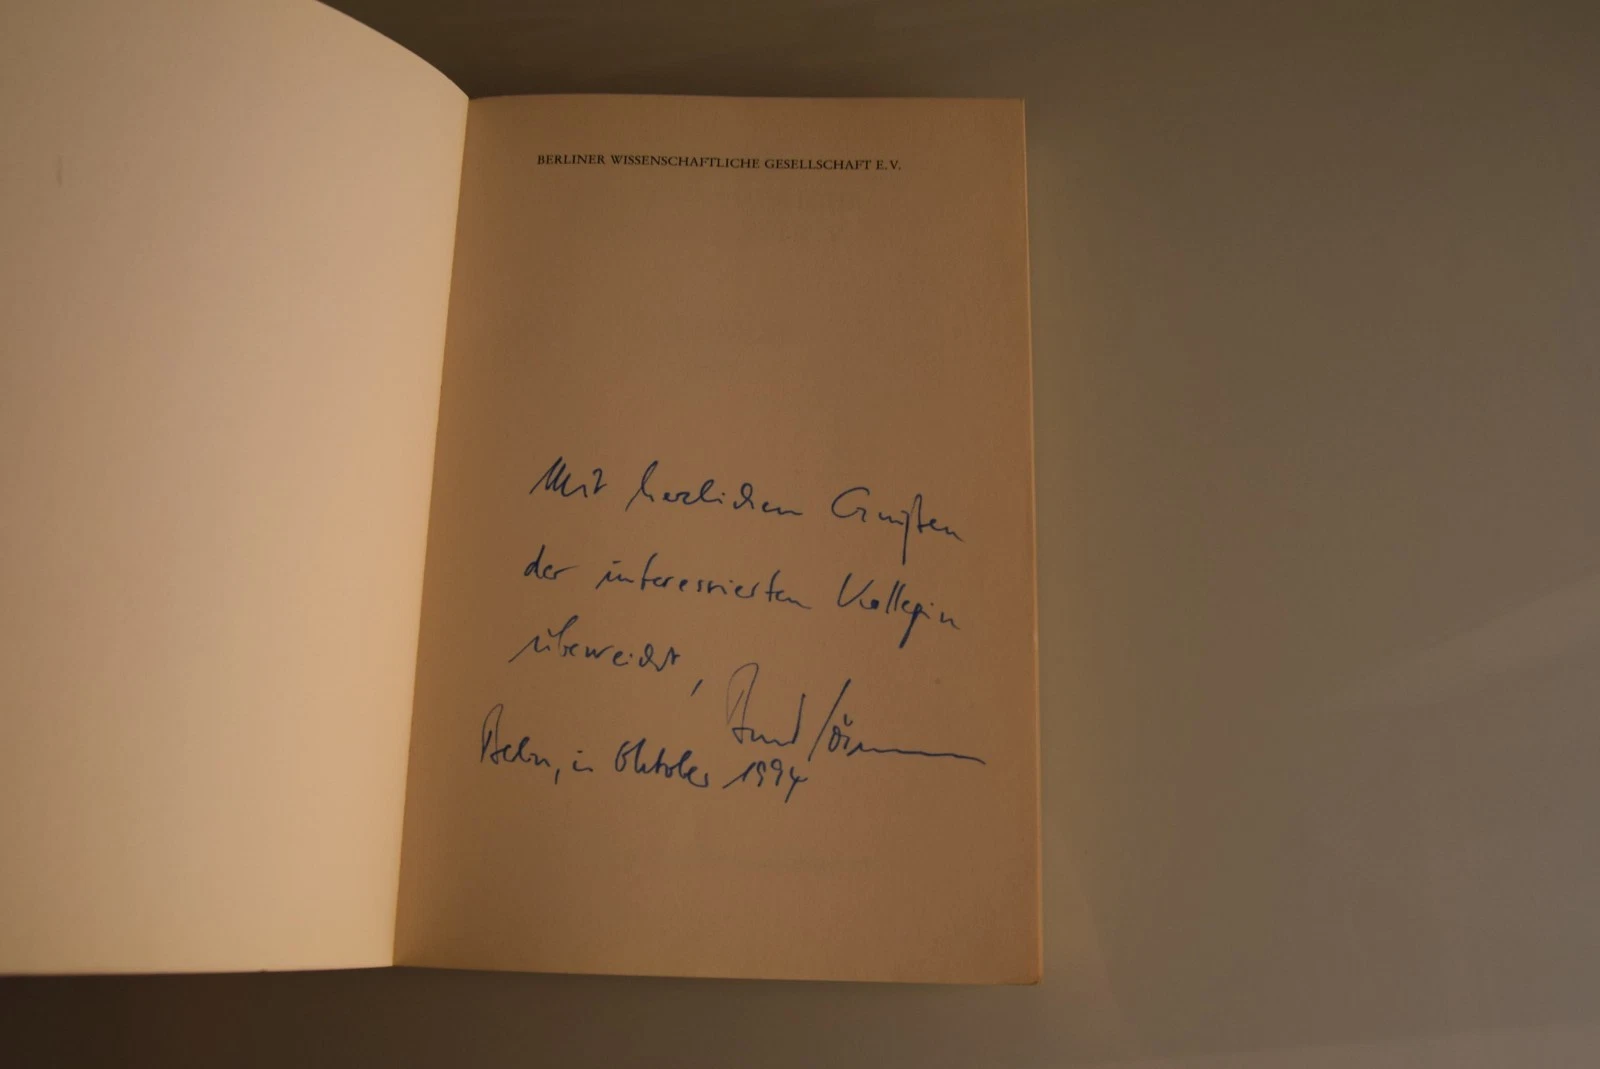 BERLINER WISSENSCHAFTLICHE GESELLSCHAFT E. V.
Mit herzlichen Grüßen
der interessierten Kollegin
überreicht,
Berlin, im Oktober 1994